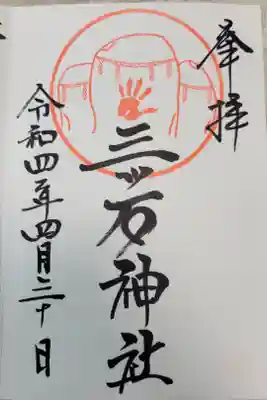 奉拝
三ツ石神社
令和四年四月三十日